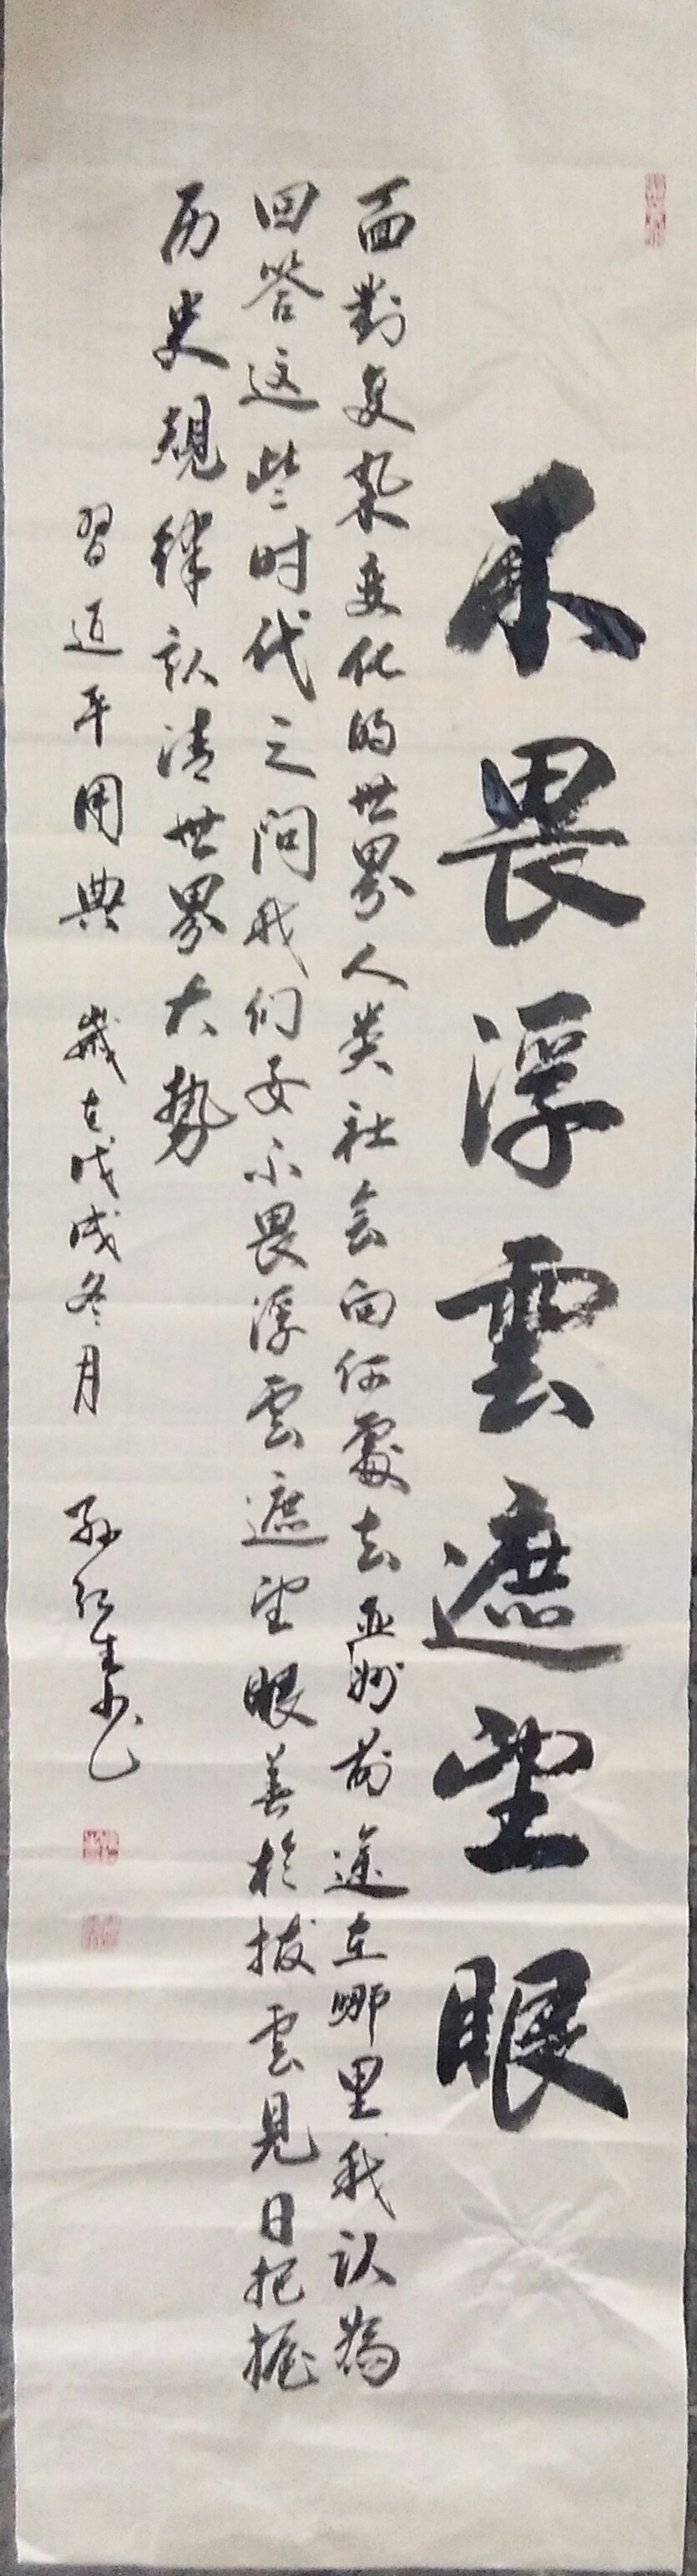 不畏浮雲遮望眼
面對复杂变化的世界人类社会向何處去亚洲前途在哪里我认為
回答这些时代之问我们要不畏浮雲遮望眼善於拔雲見日把握
历史规律认清世界大势
習近平用典 歲在戊戌冬月 孙红生书